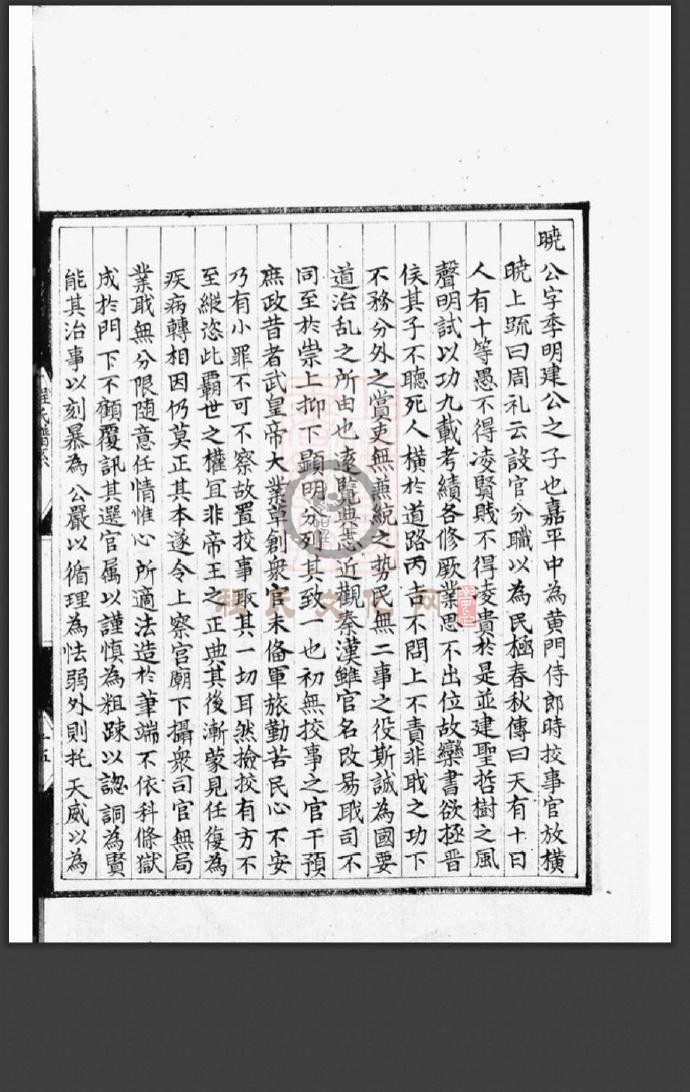 曉公字季明建公之子也嘉平中為黄門侍郎時挍事官放横
曉上䟽曰周礼云設官分職以為民極春秋傳曰天有十日
人有十等愚不得凌賢賎不得凌貴於是並建聖哲樹之風
聲明試以功九載考績各修厥業思不出位故欒書欲拯晋
侯其子不聽死人横於道路丙吉不問上不責非耺之功下
不務分外之賞吏無兼統之势民無二事之役斯誠為國要
道治乱之所由也遠覽典志近觀秦漢雖官名改易耺司不
同至於崇上抑下顯明分列其致一也初無挍事之官干預
庶政昔者武皇帝大業草創衆官未俻軍旅勤苦民心不安
乃有小罪不可不察故置挍事取其一切耳然撿挍有方不
至縱恣此霸世之權冝非帝王之正典其後漸蒙見任復為
疾病轉相因仍莫正其本遂令上察官廟下攝衆司官無局
業耺無分限随意任情惟心所適法造於筆端不依科條獄
成於門下不顧覆訊其選官属以謹慎為粗踈以謥詷為賢
能其治事以刻暴為公嚴以循理為怯弱外則托天威以為
程氏譜系
十五
程氏文化网